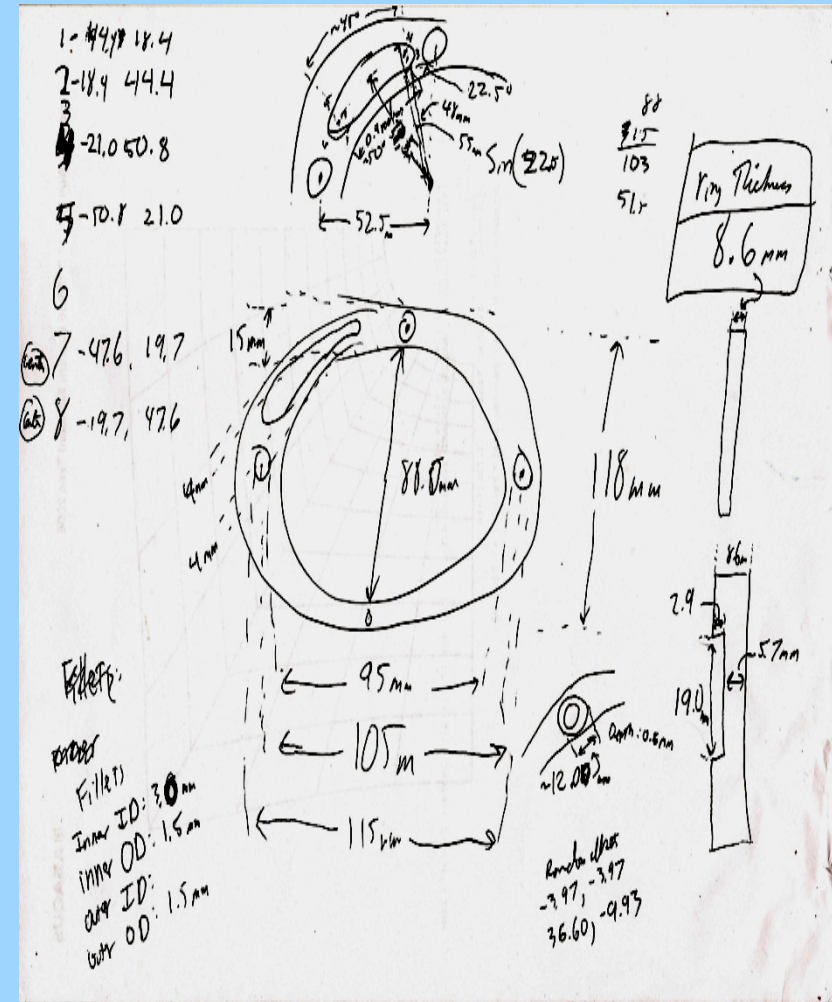 18.4
2 -18.4 44.4
3
-21.0 50.8
5 -50.8 21.0
6
7 -47.6, 19.7
8 -19.7, 47.6
~45°
22.5°
48mm
55mm
Sin(22.5)
52.5
88
15
103
51.5
Ring Thickness
8.6 mm
15mm
4mm
4mm
88.0mm
118mm
95mm
105m
115mm
8.6m
2.9
19.0
~5.7mm
Depth: 0.6mm
Fillets:
Fillets
Inner ID: 3.0 mm
inner OD: 1.5 mm
outer ID:
outer OD: 1.5 mm
-3.97, -3.97
36.60, -9.93